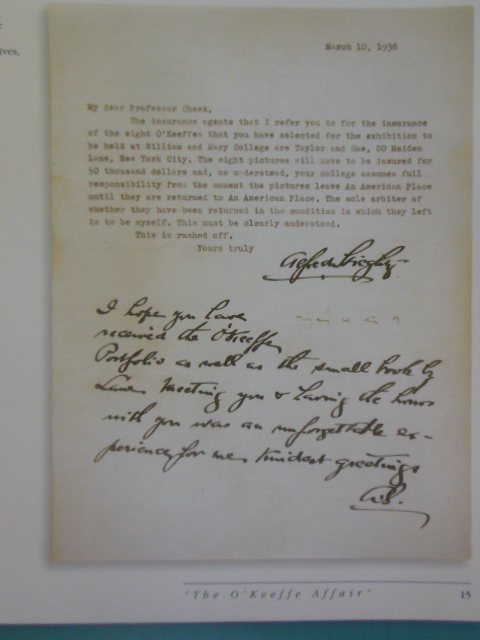 ives.
March 10, 1938
My dear Professor Cheek,
The insurance agents that I refer you to for the insurance
of the eight O'Keeffes that you have selected for the exhibition to
be held at William and Mary College are Taylor and Hoe, 80 Maiden
Lane, New York City. The eight pictures will have to be insured for
50 thousand dollars and, as understood, your college assumes full
responsibility from the moment the pictures leave An American Place
until they are returned to An American Place. The sole arbiter of
whether they have been returned in the condition in which they left
is to be myself. This must be clearly understood.
This is rushed off.
Yours truly
Alfred Stieglitz
I hope you have
received the O'Keeffe
Portfolio as well as the small book by
Meeting you & having the honor
with you was an unforgettable ex-
perience for me. Kindest greetings
A.S.
"The O'Keeffe Affair"
15